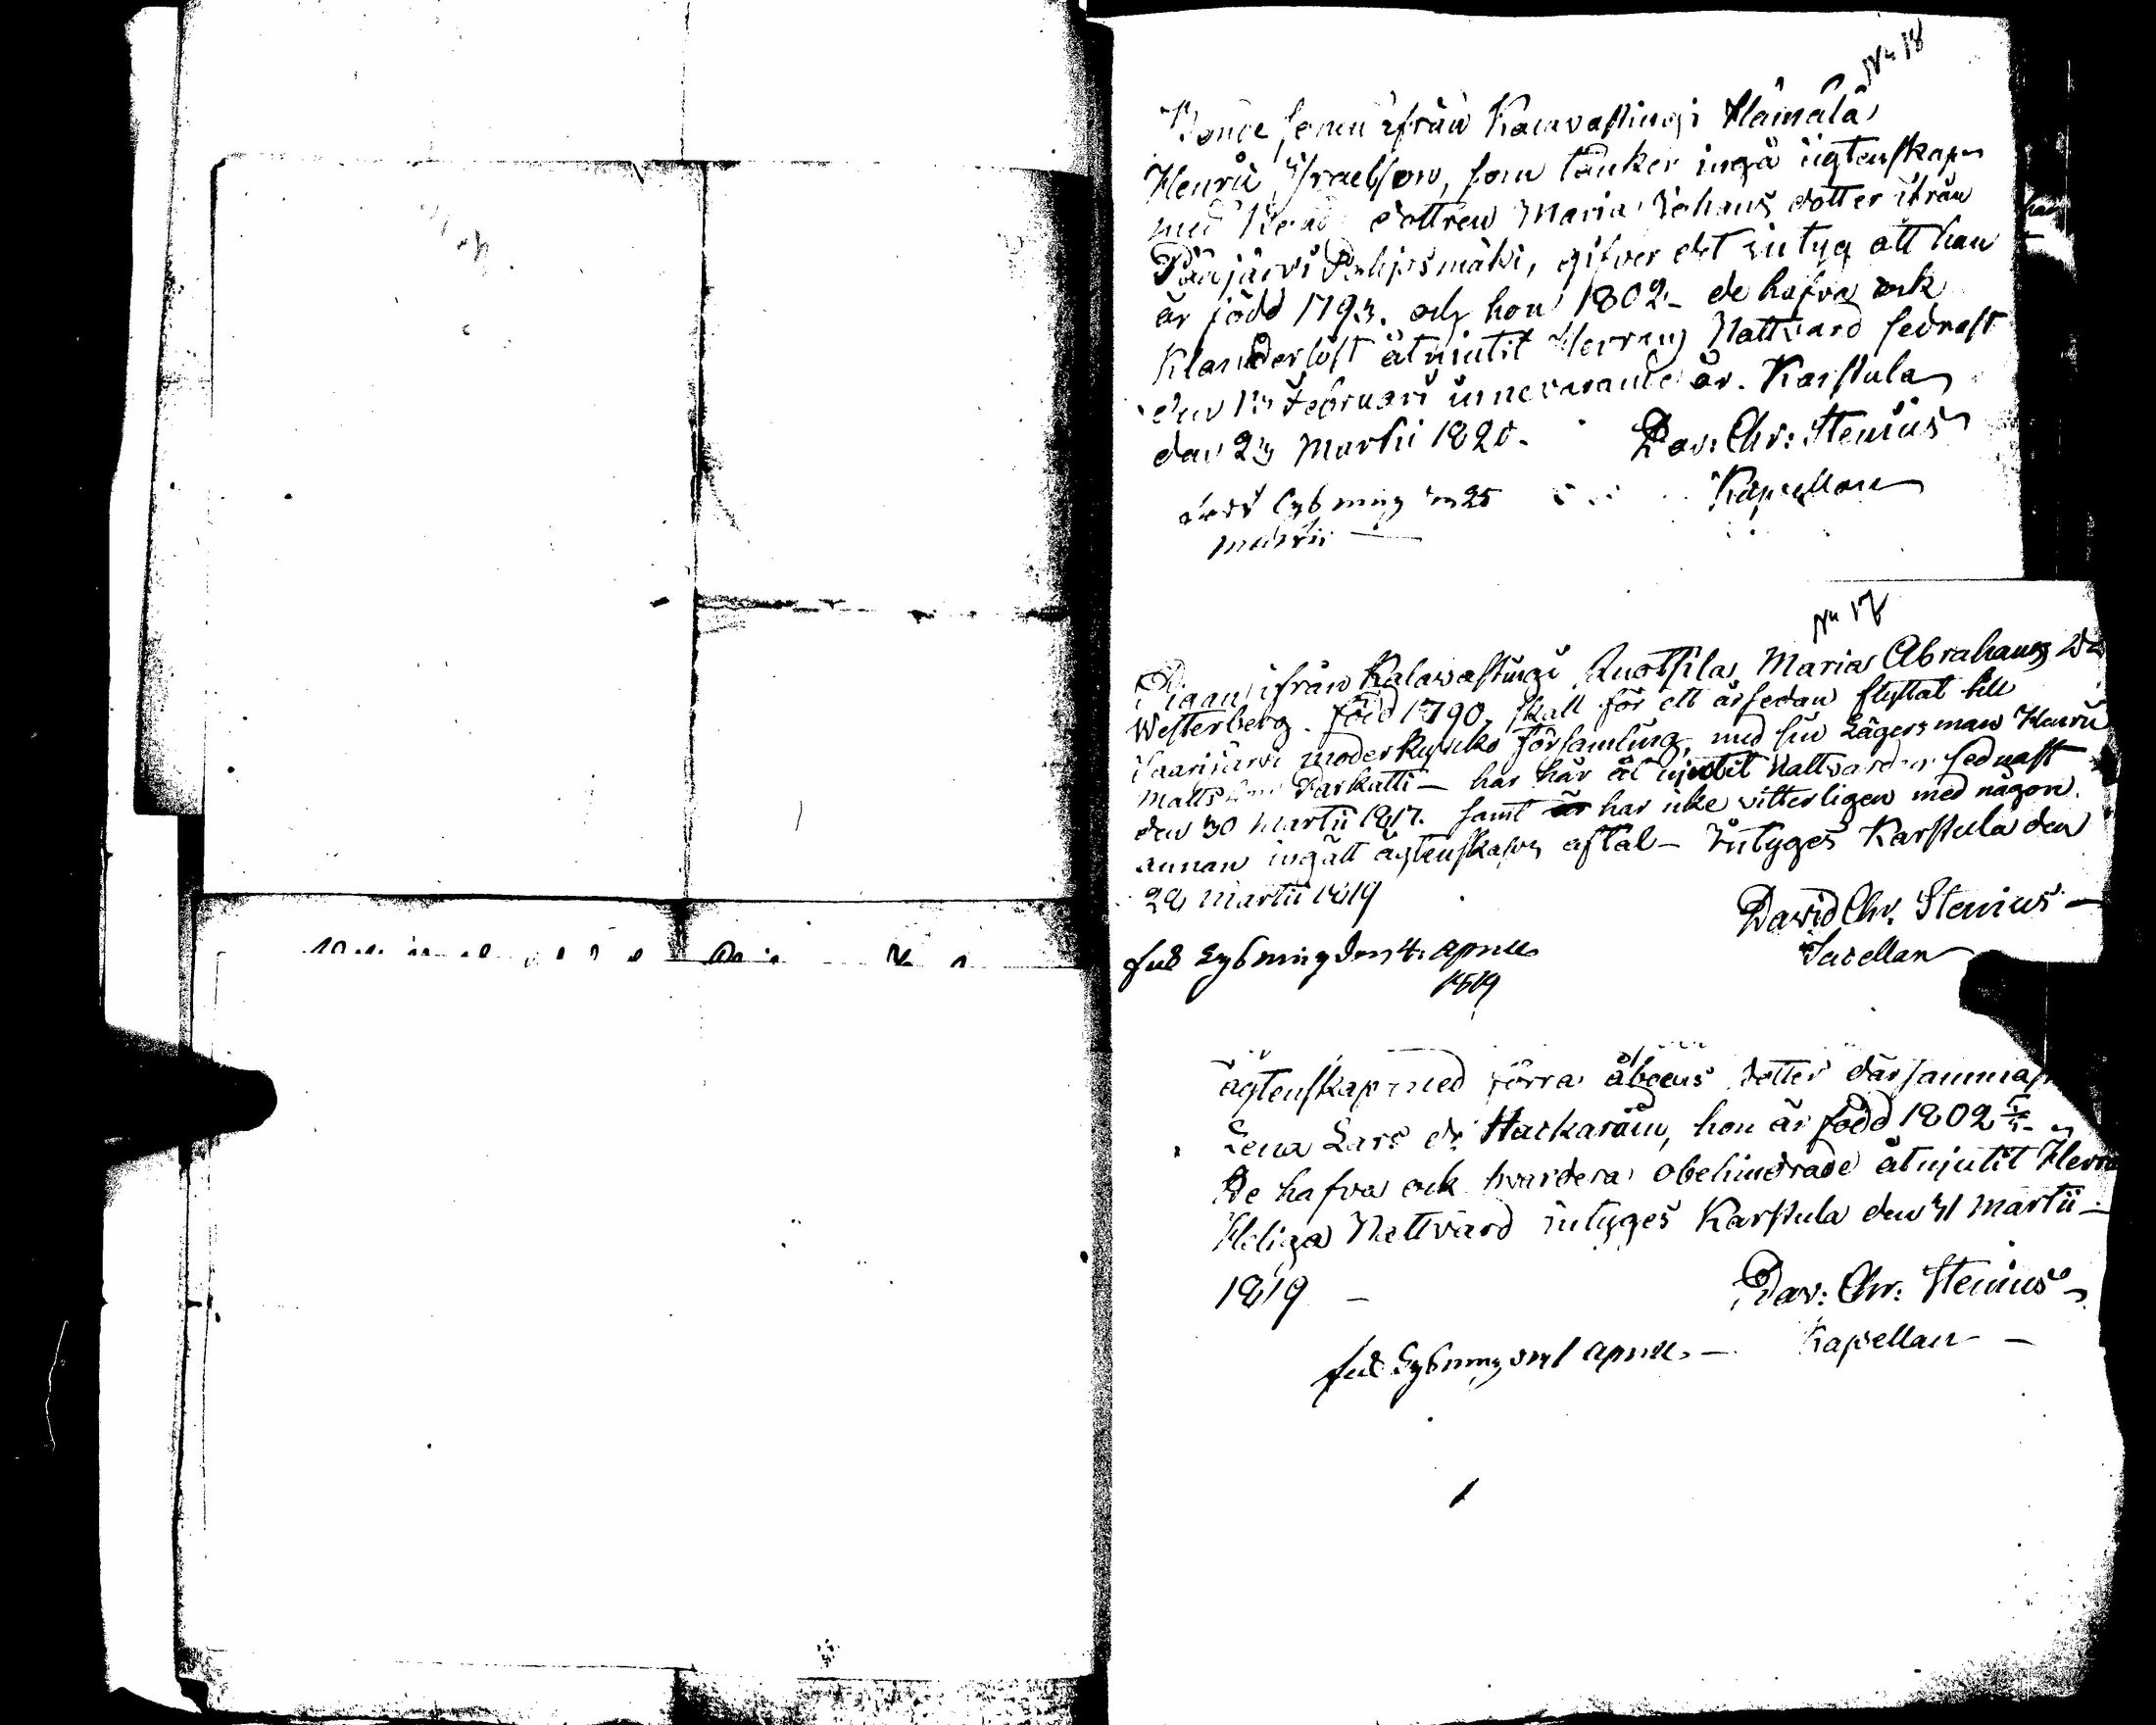 No 18
Bonde sonen ifrån Kalmavaktingi Hämälä
Henric Israelsson, som tänker ingå ägtenskap
med Bond dottren Maria Johans dotter ifrån
Pääjärvi, gifver det intyg att han
är född 1793. och hon 1802 - de hafva ock
Klanderlöst åtnjutit Herrans Nattvard sednast
den Februari innevarande år. Karstula
den 23 Martii 1820.
Dav: Chr: Stenius
Kapellan
Lysning 25
Martii
No 17
Pigan ifrån Kalmavaktingi Ruotsila Maria Abrahams dr
Westerberg. född 1790, skall för ett år sedan flyttat till
Saarijärvi moderkyrko församling, med sin Lägersman Henric
Mattsson Parkatti - har här åtnjutit Nattvarden sednast
den 30 Martii 1817. samt är har icke vitterligen med någon
annan ingått ägtenskaps aftal - Intyges Karstula den
28 Martii 1819
David Chr. Stenius -
Sacellan
Lysning den 4 April
1819
ägtenskap med förra åboens dotter därsammast
Lena Lars dr Hackarain, hon är född 1802
De hafva ock hvardera obehindrade åtnjutit Herrans
Heliga Nattvard intyges Karstula den 31 Martii -
1819 -
Dav: Chr: Stenius
Kapellan -
Lysning April -